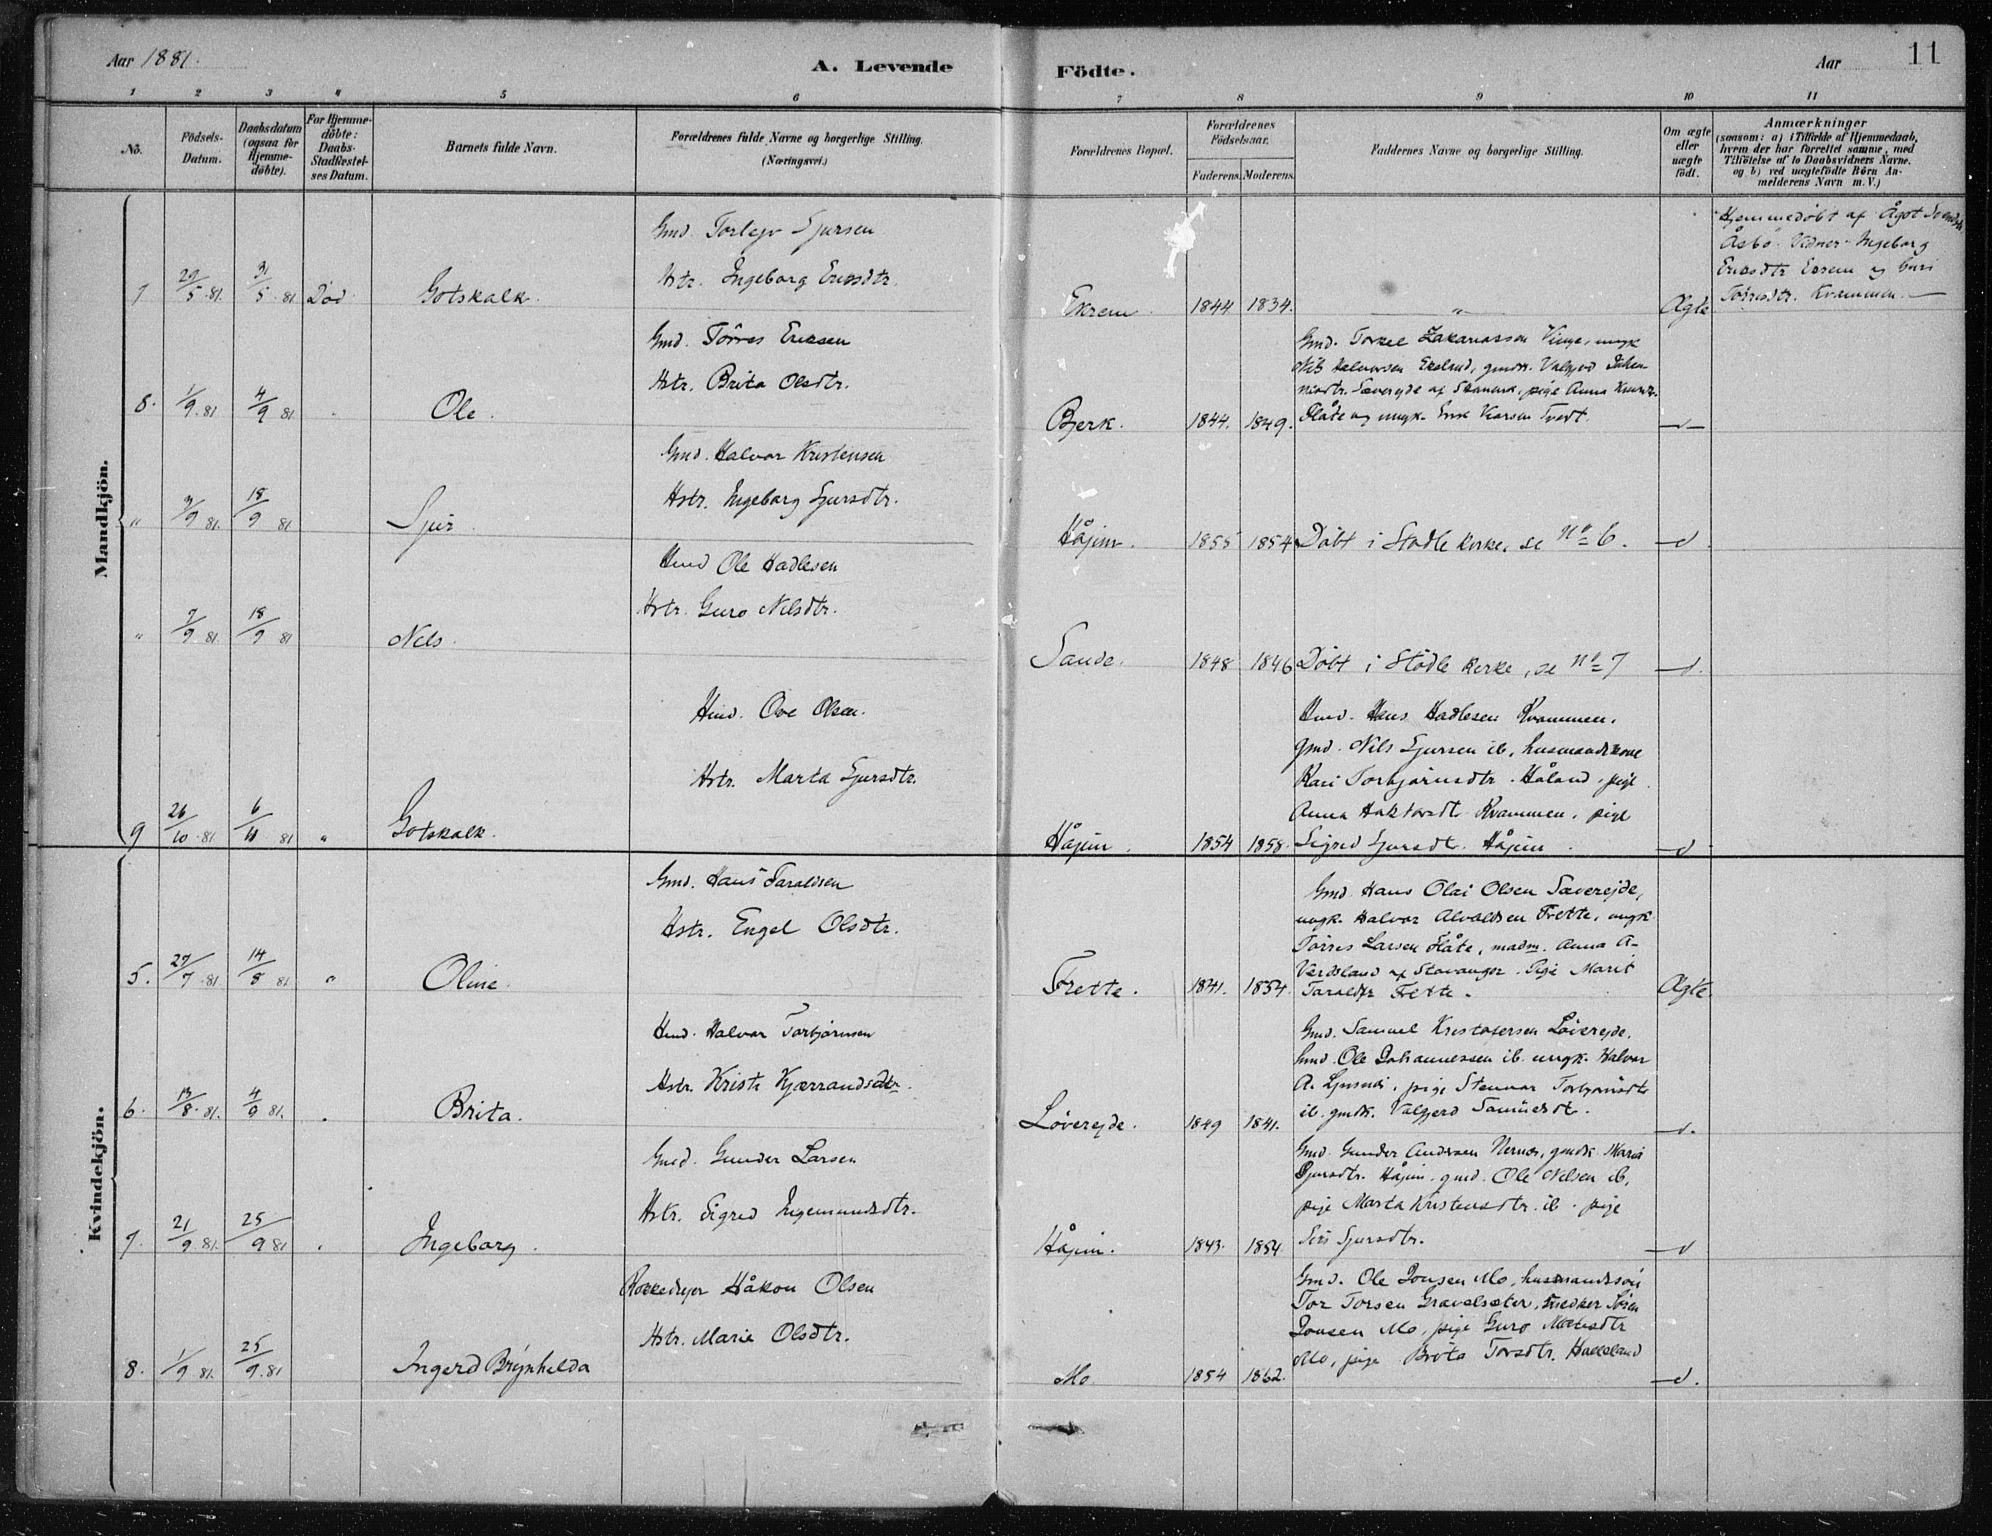 Aar 1881.
A. Levende
Födte.
Aar
11
1 2 3 4 5 6 7 8 9 10 11
No.
Födsels-Datum.
Daabsdatum (ogsaa for Hjemme-döbte).
For Hjemme-döbte: Daabs-Stadfæstel-ses Datum.
Barnets fulde Navn.
Forældrenes fulde Navne og borgerlige Stilling. (Næringsvei.)
Forældrenes Bopæl.
Forældrenes Födselsaar.
Faderens. Moderens.
Faddernes Navne og borgerlige Stilling.
Om ægte eller uægte födt.
Anmærkninger
(saasom: a) i Tilfælde af Hjemmedaab, hvem der har forrettet samme, med Tilföielse af to Daabsvidners Navne. og b) ved uægtefödte Börn An-melderens Navn m. V.)
Mandkjön.
Gmd. Torleiv Sjursen
Hstr. Ingeborg Eriksdtr.
7 29/5 81. 31/5 81 Död Gotskalk.
Ekrem. 1844 1834. " Ægte
Hjemmedöbt af Ågot
Åsbö. Vidner Ingeborg
Eriksdtr Ekrem og Guri
Törresdtr. Kvammen.
Gmd. Törres Eriksen
Hstr. Brita Olsdtr.
8. 1/9. 81 4/9 81 Ole.
Bjerk. 1844. 1849.
Gmd. Torkel Zakariassen Vinje, ungk
Nils Halvorsen Ekelund, gmdk. Valgjerd Johan-
nisdtr. Sævereide af Skånevik, pige Anna
Flåte og ungk. Erik Tvedt.
Gmd. Halvor Kristensen
Hstr. Ingeborg Sjursdtr.
" 3/9 81. 18/9 81 Sjur
Håjim. 1855 1854 Döbt i Stödle kirke, se No 6.
Hmd Ole Hadlesen
Hstr. Guro Nilsdtr.
" 7/9. 81 18/9 81 Nils.
Sande. 1848 1846 Döbt i Stödle kirke, se No 7
Hmd. Ove Olsen.
Hstr. Marta Sjursdtr.
9 26/10 81 6/11 81 " Gotskalk.
Håjim. 1854 1858.
Hmd. Hans Hadlesen Kvammen,
gmd. Nils Sjursen ib, husmandskone
Kari Torbjörnsdtr. Håland, pige
Anna Kvammen, pige
Sigrid Sjursdt. Håjim.
Kvindekjön.
Gmd. Hans Taraldsen
Hstr. Engel Olsdtr.
5. 27/7 81 14/8 81 " Oline.
Frette. 1841. 1854. Ægte.
Gmd. Hans Olai Olsen Sævereide,
ungk. Halvor Alvaldsen Frette, ungk
Törres Larsen Flåte, madm. Anna A-
Værdsland af Stavanger. Pige Marit
Taraldsdtr Frette.
Hmd. Halvor Torbjörnsen
Hstr. Kristi Kjærrandsdtr.
6. 13/8. 81. 4/9 81. Brita.
Lövereide. 1849 1841.
Gmd. Samuel Kristofersen Lövereide,
Gmd. Ole Johannessen ib. ungk. Halvor
A. pige Steinvor Torbjörnsdtr
ib. gmdk. Valgjerd Samuelsdt.
Gmd. Gunder Larsen
Hstr. Sigrid Ingemundsdtr.
7. 21/9. 81. 25/9 81 Ingeborg.
Håjim. 1843. 1854.
Gmd. Gunder Andersen Nernes, gmdk. Maria
Sjursdtr. Håjim. gmd. Ole Nilsen ib,
pige Marta Kristensdtr. ib. pige
Siri Sjursdtr.
Rokkedrejer Håkon Olsen
Hstr. Marie Olsdtr.
8. 1/9 81. 25/9. 81 Ingerd Brynhilda
Mo 1854 1862.
Gmd. Ole Jonsen Mo, husmandssön
Tor Torsen Gravelsæter, snedker Sören
Jonsen Mo, pige Guro
Mo, pige Brita Torsdtr. Halleland